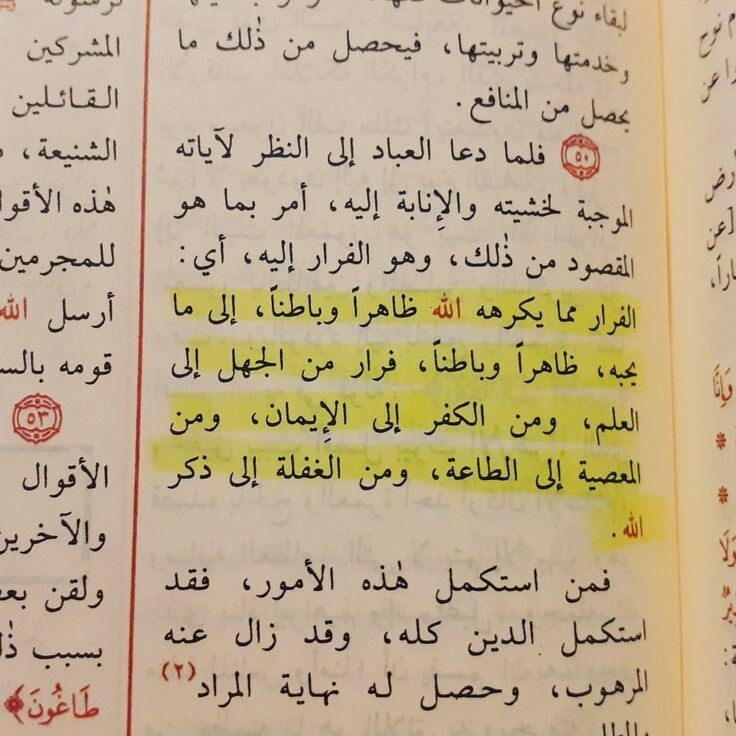 نوح
عن
[عن
وَإِنَّا
لبقاء نوع الحيوانات
وخدمتها وتربيتها، فيحصل من ذٰلك ما
يحصل من المنافع.
٥٠ فلما دعا العباد إلى النظر لآياته
الموجبة لخشيته والإِنابة إليه، أمر بما هو
المقصود من ذٰلك، وهو الفرار إليه، أي:
الفرار مما يكرهه الله ظاهراً وباطناً، إلى ما
يحبه، ظاهراً وباطناً، فرار من الجهل إلى
العلم، ومن الكفر إلى الإِيمان، ومن
المعصية إلى الطاعة، ومن الغفلة إلى ذكر
الله.
فمن استكمل هٰذه الأمور، فقد
استكمل الدين كله، وقد زال عنه
المرهوب، وحصل له نهاية المراد(٢)
المشركين
القائلين
الشنيعة،
هٰذه
للمجرمين
أرسل الله
قومه
٥٣
الأقوال
والآخرين
ولقن
بسبب
طَاغُونَ﴾